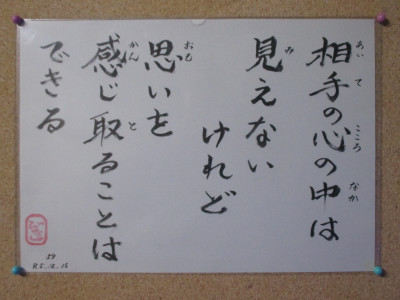 相手の心の中は
見えない
けれど
思いを
感じ取ることは
できる
あいて こころ なか
み
おも
かん と
59
R5.12.15